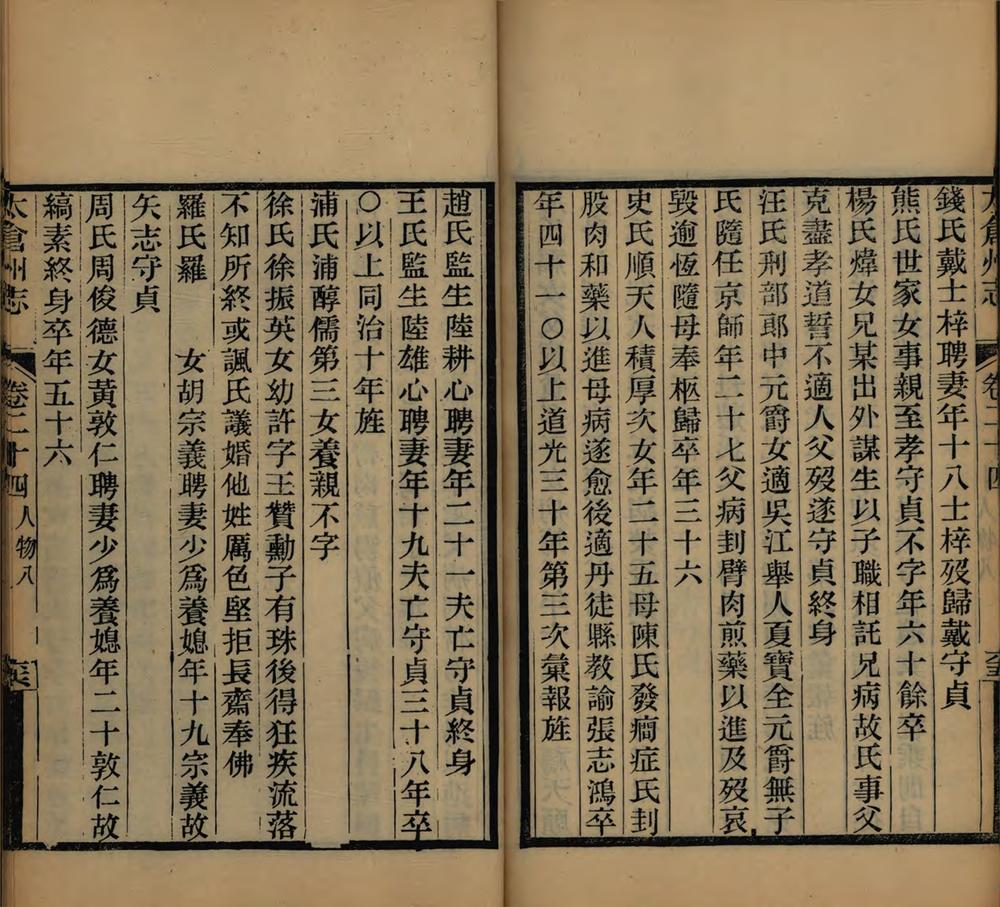 太倉州志 卷二十四
錢氏戴士梓聘妻年十八士梓歿歸戴守貞
熊氏世家女事親至孝守貞不字年六十餘卒
楊氏煒女兄某出外謀生以子職相託兄病故氏事父
克盡孝道誓不適人父歿遂守貞終身
汪氏刑部郎中元爵女適吳江舉人夏寶全元爵無子
氏隨任京師年二十七父病刲臂肉煎藥以進及歿哀
毀逾恆隨母奉柩歸卒年三十六
史氏順天人積厚次女年二十五母陳氏發痌症氏刲
股肉和藥以進母病遂愈後適丹徒縣教諭張志鴻卒
年四十一〇以上道光三十年第三次彙報旌
趙氏監生陸耕心聘妻年二十一夫亡守貞終身
王氏監生陸雄心聘妻年十九夫亡守貞三十八年卒
〇以上同治十年旌
浦氏浦醇儒第三女養親不字
徐氏徐振英女幼許字王贊勳子有珠後得狂疾流落
不知所終或諷氏議婚他姓厲色堅拒長齋奉佛
羅氏羅 女胡宗義聘妻少爲養媳年十九宗義故
矢志守貞
周氏周俊德女黃敦仁聘妻少爲養媳年二十敦仁故
縞素終身卒年五十六
太倉州志 卷二十四 人物八